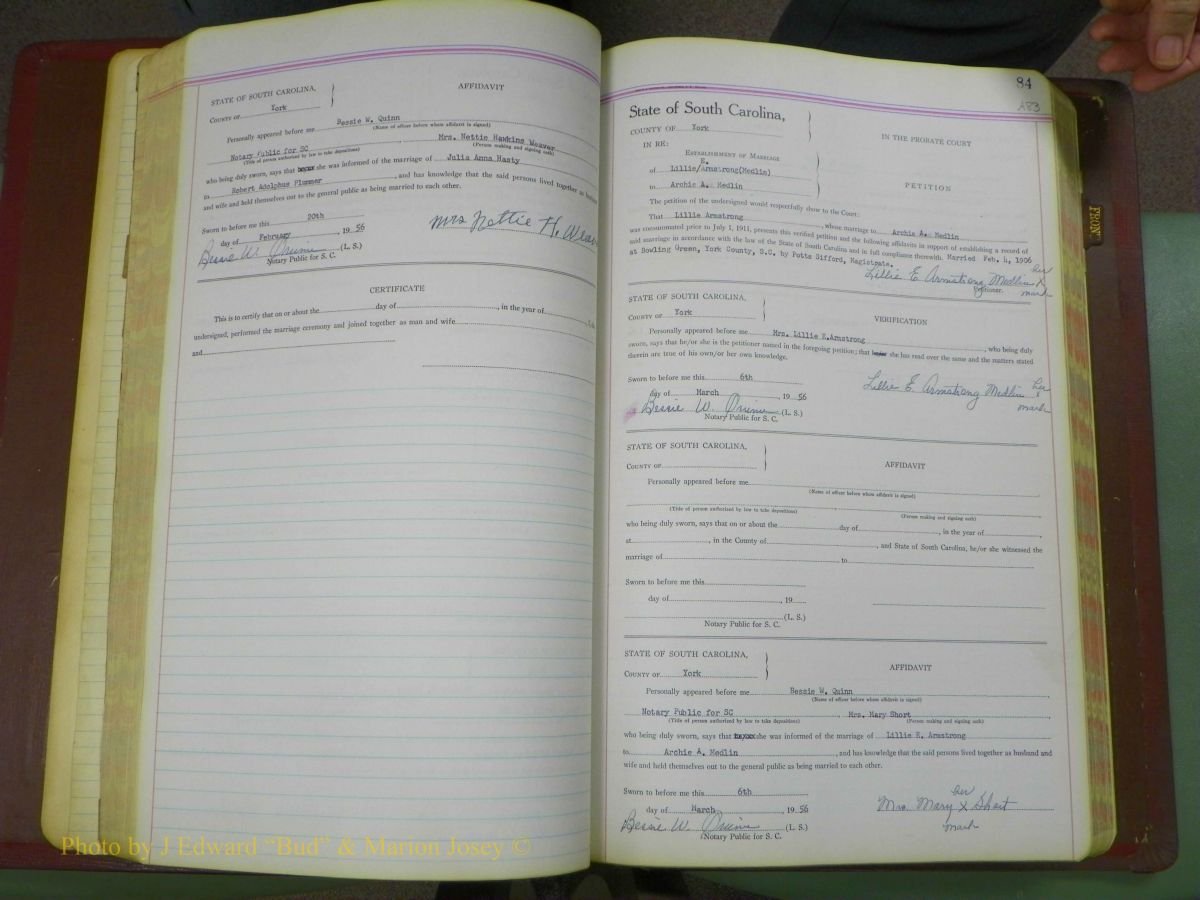 STATE OF SOUTH CAROLINA,
AFFIDAVIT
COUNTY OF York
Personally appeared before me Bessie W. Quinn
(Name of officer before whom affidavit is signed)
Notary Public for SC, Mrs. Nettie Hawkins Weaver
(Title of person authorized by law to take depositions) (Person making and signing oath)
who being duly sworn, says that she was informed of the marriage of Julia Anna Hasty
to Robert Adolphus Plummer, and has knowledge that the said persons lived together as husband
and wife and held themselves out to the general public as being married to each other.
Sworn to before me this 20th
day of February, 19 56
Mrs Nettie H. Weav
Bessie W. Quinn (L. S.)
Notary Public for S. C.
CERTIFICATE
This is to certify that on or about the day of , in the year of
undersigned, performed the marriage ceremony and joined together as man and wife
and
84
A83
State of South Carolina,
COUNTY OF York
IN THE PROBATE COURT
IN RE:
ESTABLISHMENT OF MARRIAGE
E.
of Lillie/Armstrong(Medlin)
to Archie A. Medlin
PETITION
The petition of the undersigned would respectfully show to the Court:
That Lillie Armstrong, whose marriage to Archie A. Medlin
was consummated prior to July 1, 1911, presents this verified petition and the following affidavits in support of establishing a record of
said marriage in accordance with the law of the State of South Carolina and in full compliance therewith. Married Feb. 4, 1906
at Bowling Green, York County, S.C. by Potts Gifford, Magistrate.
Lillie E. Armstrong Medlin her X mark
Petitioner.
STATE OF SOUTH CAROLINA,
COUNTY OF York
VERIFICATION
Personally appeared before me Mrs. Lillie E.Armstrong, who being duly
sworn, says that he/or she is the petitioner named in the foregoing petition; that she has read over the same and the matters stated
therein are true of his own/or her own knowledge.
Sworn to before me this 6th
Lillie E. Armstrong Medlin her x mark
day of March, 19 56
Bessie W. Quinn (L. S.)
Notary Public for S. C.
STATE OF SOUTH CAROLINA,
COUNTY OF
AFFIDAVIT
Personally appeared before me
(Name of officer before whom affidavit is signed)
(Title of person authorized by law to take depositions) (Person making and signing oath)
who being duly sworn, says that on or about the day of , in the year of ,
at , in the County of , and State of South Carolina, he/or she witnessed the
marriage of to
Sworn to before me this
day of , 19
(L. S.)
Notary Public for S. C.
STATE OF SOUTH CAROLINA,
COUNTY OF York
AFFIDAVIT
Personally appeared before me Bessie W. Quinn
(Name of officer before whom affidavit is signed)
Notary Public for SC, Mrs. Mary Short
(Title of person authorized by law to take depositions) (Person making and signing oath)
who being duly sworn, says that she was informed of the marriage of Lillie E. Armstrong
to Archie A. Medlin, and has knowledge that the said persons lived together as husband and
wife and held themselves out to the general public as being married to each other.
Sworn to before me this 6th
day of March, 19 56
Mrs. Mary her X mark Short
Bessie W. Quinn (L. S.)
Notary Public for S. C.
FRONT
Photo by J Edward "Bud" & Marion Josey ©